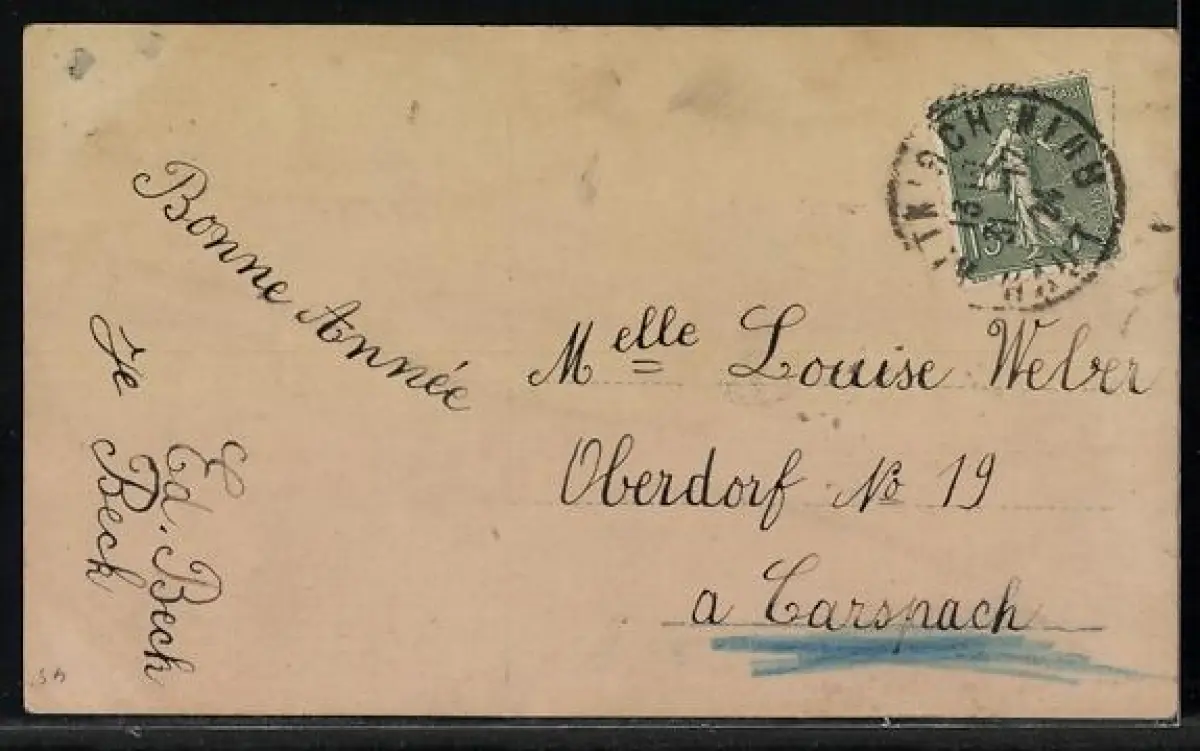 Bonne Année
Je
Ed. Beck
Beck
Melle Louise Weber
Oberdorf No 19
a Carspach
15